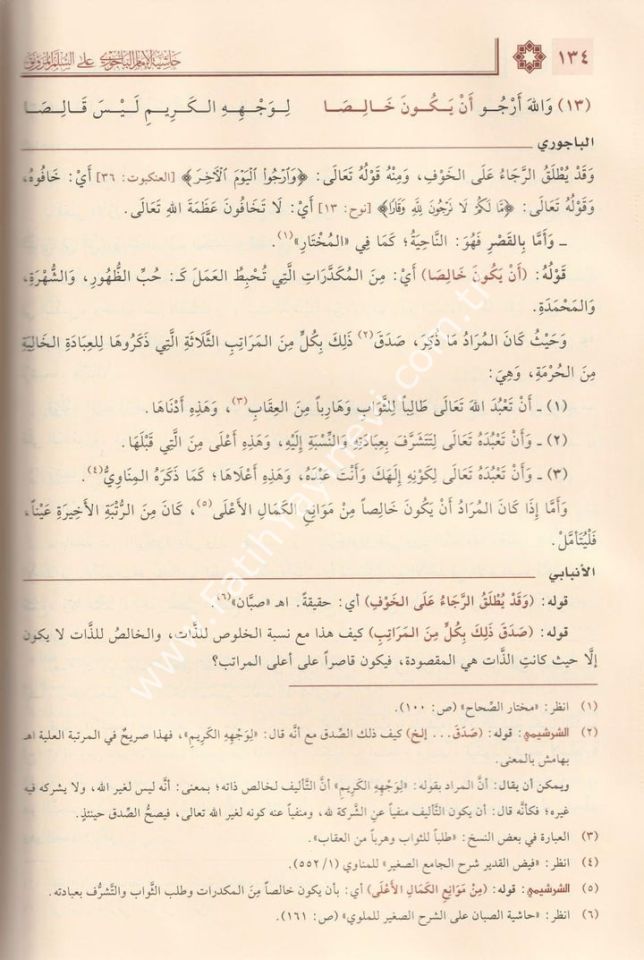 ١٣٤
حاشية الإمام الباجوري على السلم المرونق
(١٣) وَاللهَ أَرْجُو أَنْ يَكُونَ خَالِصَا لِوَجْهِهِ الكَرِيمِ لَيْسَ قَالِصَا
الباجوري
وَقَدْ يُطْلَقُ الرَّجَاءُ عَلَى الخَوْفِ، وَمِنْهُ قَوْلُهُ تَعَالَى: ﴿وَٱرْجُوا۟ ٱلْيَوْمَ ٱلْـَٔاخِرَ﴾ [العنكبوت: ٣٦] أَيْ: خَافُوهُ،
وَقَوْلُهُ تَعَالَى: ﴿مَّا لَكُمْ لَا تَرْجُونَ لِلَّهِ وَقَارًا﴾ [نوح: ١٣] أَيْ: لَا تَخَافُونَ عَظَمَةَ اللهِ تَعَالَى.
ـ وَأَمَّا بِالقَصْرِ فَهُوَ: النَّاحِيَةُ؛ كَمَا فِي «المُخْتَارِ»(١).
قَوْلُهُ: (أَنْ يَكُونَ خَالِصَا) أَيْ: مِنَ المُكَدَّرَاتِ الَّتِي تُحْبِطُ العَمَلَ كَـ: حُبِّ الظُّهُورِ، وَالشُّهْرَةِ،
وَالمَحْمَدَةِ.
وَحَيْثُ كَانَ المُرَادُ مَا ذُكِرَ، صَدَقَ(٢) ذَلِكَ بِكُلٍّ مِنَ المَرَاتِبِ الثَّلَاثَةِ الَّتِي ذَكَرُوهَا لِلعِبَادَةِ الخَالِيَةِ
مِنَ الحُرْمَةِ، وَهِيَ:
(١) ـ أَنْ تَعْبُدَ اللهَ تَعَالَى طَالِباً لِلثَّوَابِ وَهَارِباً مِنَ العِقَابِ(٣)، وَهَذِهِ أَدْنَاهَا.
(٢) ـ وَأَنْ تَعْبُدَهُ تَعَالَى لِتَتَشَرَّفَ بِعِبَادَتِهِ وَالنِّسْبَةِ إِلَيْهِ، وَهَذِهِ أَعْلَى مِنَ الَّتِي قَبْلَهَا.
(٣) ـ وَأَنْ تَعْبُدَهُ تَعَالَى لِكَوْنِهِ إِلَهَكَ وَأَنْتَ عَبْدُهُ، وَهَذِهِ أَعْلَاهَا؛ كَمَا ذَكَرَهُ المِنَاوِيُّ(٤).
وَأَمَّا إِذَا كَانَ المُرَادُ أَنْ يَكُونَ خَالِصاً مِنْ مَوَانِعِ الكَمَالِ الأَعْلَى(٥)، كَانَ مِنَ الرُّتْبَةِ الأَخِيرَةِ عَيْناً،
فَلْيُتَأَمَّلْ.
الأنبابي
قوله: (وَقَدْ يُطْلَقُ الرَّجَاءُ عَلَى الخَوْفِ) أي: حقيقةً. اهـ «صبَّان»(٦).
قوله: (صَدَقَ ذَلِكَ بِكُلٍّ مِنَ المَرَاتِبِ) كيف هذا مع نسبة الخلوص للذَّات، والخالصُ للذَّات لا يكون
إلَّا حيث كانتِ الذَّات هي المقصودة، فيكون قاصراً على أعلى المراتب؟
(١) انظر: «مختار الصِّحاح» (ص: ١٠٠).
(٢) الشرشيمي: قوله: (صَدَقَ... إلخ) كيف ذلك الصِّدق مع أنَّه قال: «لِوَجْهِهِ الكَرِيمِ»، فهذا صريحٌ في المرتبة العلية اهـ
بهامش بالمعنى.
ويمكن أن يقال: أنَّ المراد بقوله: «لِوَجْهِهِ الكَرِيمِ» أنَّ التَّأليف لخالص ذاته؛ بمعنى: أنَّه ليس لغير الله، ولا يشركه فيه
غيره؛ فكأنَّه قال: أن يكون التَّأليف منفياً عن الشَّركة لله، ومنفياً عنه كونه لغير الله تعالى، فيصحُّ الصِّدق حينئذٍ.
(٣) العبارة في بعض النسخ: «طلباً للثواب وهرباً من العقاب».
(٤) انظر: «فيض القدير شرح الجامع الصغير» للمناوي (١/ ٥٥٢).
(٥) الشرشيمي: قوله: (مِنْ مَوَانِعِ الكَمَالِ الأَعْلَى) أي: بأن يكون خالصاً مِنَ المكدرات وطلب الثَّواب والتَّشرُّف بعبادته.
(٦) انظر: «حاشية الصبان على الشرح الصغير للملوي» (ص: ١٦١).
www.fatihyayinevi.com.tr